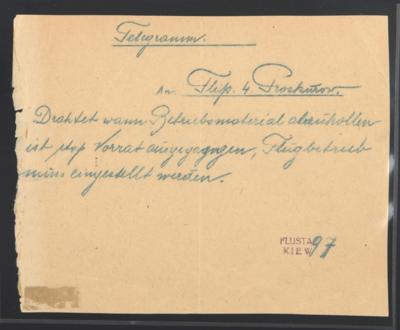 Telegramm.
An Flip. 4 Proskurow.
Drahtet wann Betriebsmaterial abzuhollen
ist stop Vorrat ausgegangen, Flugbetrieb
muss eingestellt werden.
FLUSTA 97
KIEW